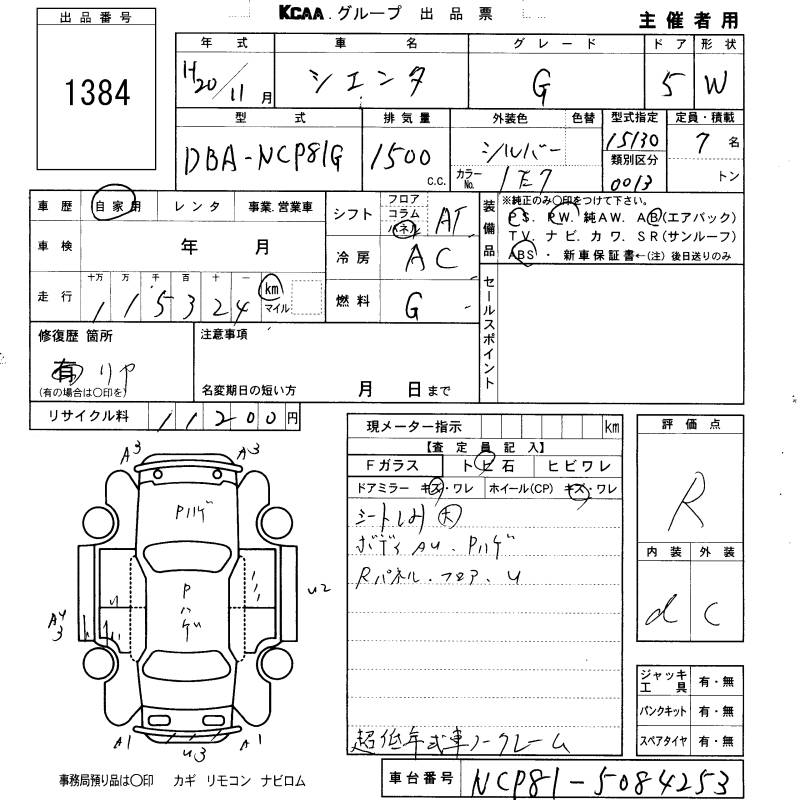 出品番号
KCAA.グループ 出品票
主催者用
1384
年式 車名 グレード ドア 形状
H20/11月 シエンタ G 5 W
型式 排気量 外装色 色替 型式指定 定員・積載
DBA-NCP81G 1500 C.C. シルバー 15130 7名
カラーNo. 1E7 類別区分 0013 トン
車歴 自家用 レンタ 事業.営業車
シフト フロア コラム パネル AT
装備品 ※純正のみ○印をつけて下さい。
PS. PW. 純AW. AB(エアバック)
TV. ナビ. カワ. SR(サンルーフ)
ABS ・ 新車保証書←(注)後日送りのみ
車検 年 月
冷房 AC
セールスポイント
走行 十万 万 千 百 十 一 km マイル
115324
燃料 G
修復歴 箇所
有 リヤ
(有の場合は○印を)
注意事項
名変期日の短い方 月 日まで
リサイクル料 11200円
現メーター指示 km
【査定員記入】
Fガラス トビ石 ヒビワレ
ドアミラー キズ・ワレ ホイール(CP) キズ・ワレ
シートしみ 大
ボディAU. Pハゲ
Rパネル.フロア.U
超低年式車ノークレーム
評価点
R
内装 外装
d C
A3 A3
Pハゲ
Pハゲ
U2
A4
3
A1 U3 A1
ジャッキ工具 有・無
パンクキット 有・無
スペアタイヤ 有・無
事務局預り品は○印 カギ リモコン ナビロム
車台番号 NCP81-5084253